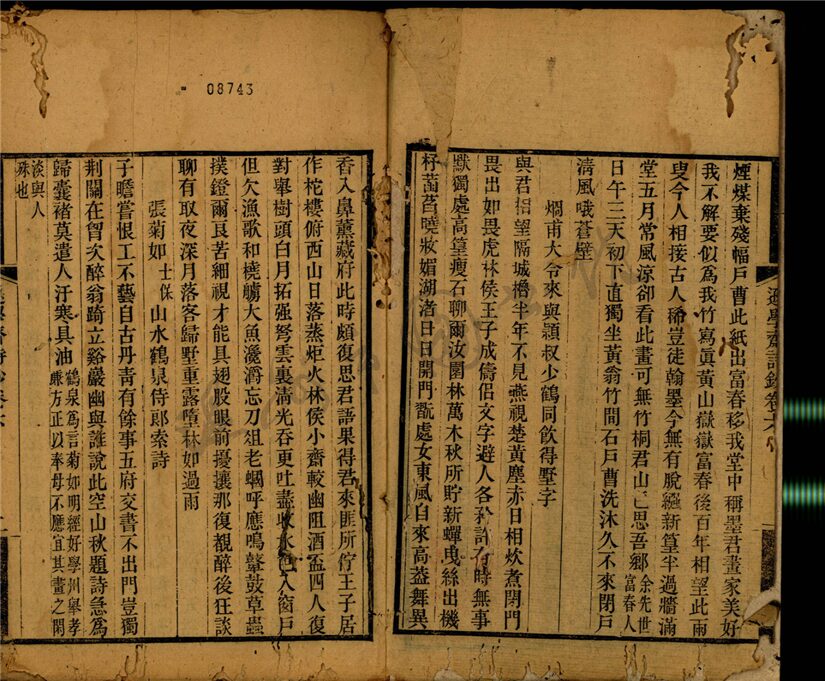 08743
煙煤棄殘幅戶曹此紙出富春移我堂中稱墨君畫家美好
我不解要似爲我竹寫眞黃山嶽嶽富春後百年相望此兩
叟今人相接古人稀豈徒翰墨今無有脫繃新篁半過牆滿
堂五月常風涼卻看此畫可無竹桐君山下思吾鄉余先世富春人
日午三天初下直獨坐黃翁竹間石戶曹洗沐久不來閉戶
清風哦蒼壁
烱甫大令來與潁叔少鶴同飲得墅字
與君相望隔城櫓半年不見燕視楚黃塵赤日相炊煮閉門
畏出如畏虎林侯王子成儔侶文字避人各矜許有時無事
默獨處高篁瘦石聊爾汝園林萬木秋所貯新蟬曳絲出機
杼菡萏曉妝媚湖渚日日開門翫處女東風自來高蓋舞異
香入鼻薰藏府此時頗復思君語果得君來匪所佇王子居
作柁樓俯西山日落蒸炬火林侯小齋較幽阻酒盃四人復
對舉樹頭白月拓强弩雲裏清光吞更吐盡收水色入窗戶
但欠漁歌和橈艣大魚瀺灂忘刀俎老蜩呼應鳴鼙鼓草蟲
撲鐙爾良苦細視才能具翅股眼前擾攘那復覩醉後狂談
聊有取夜深月落客歸墅重露墮林如過雨
張菊如士保山水鶴泉侍郎索詩
子瞻嘗恨工不藝自古丹靑有餘事五府交書不出門豈獨
荆關在胷次醉翁踦立谿巖幽與誰說此空山秋題詩急爲
歸囊褚莫遣人汙寒具油鶴泉爲言菊如明經好學州舉孝廉方正以奉母不應宜其畫之閑
淡與人
殊也